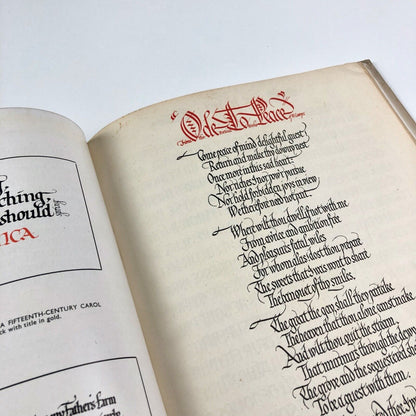 ching,
should,
ICA
A FIFTEENTH-CENTURY CAROL
ck with title in gold.
my Father's Farm
Ode To Peace
Come peace of mind delightful guest
Return and make thy downy nest
Once more in this sad heart
Nor riches I nor pow'r pursue
Nor hold forbidden joys in view
We therefore need not part.
Where wilt thou dwell if not with me
From avarice and ambition free
And pleasures fatal wiles
For whom alas dost thou prepare
The sweets that I was wont to share
The banquet of thy smiles.
The great the gay shall they partake
The heaven that thou alone must make
And wilt thou quit the stream
That murmurs through the
The grove and the sequestered
To be a guest with them.